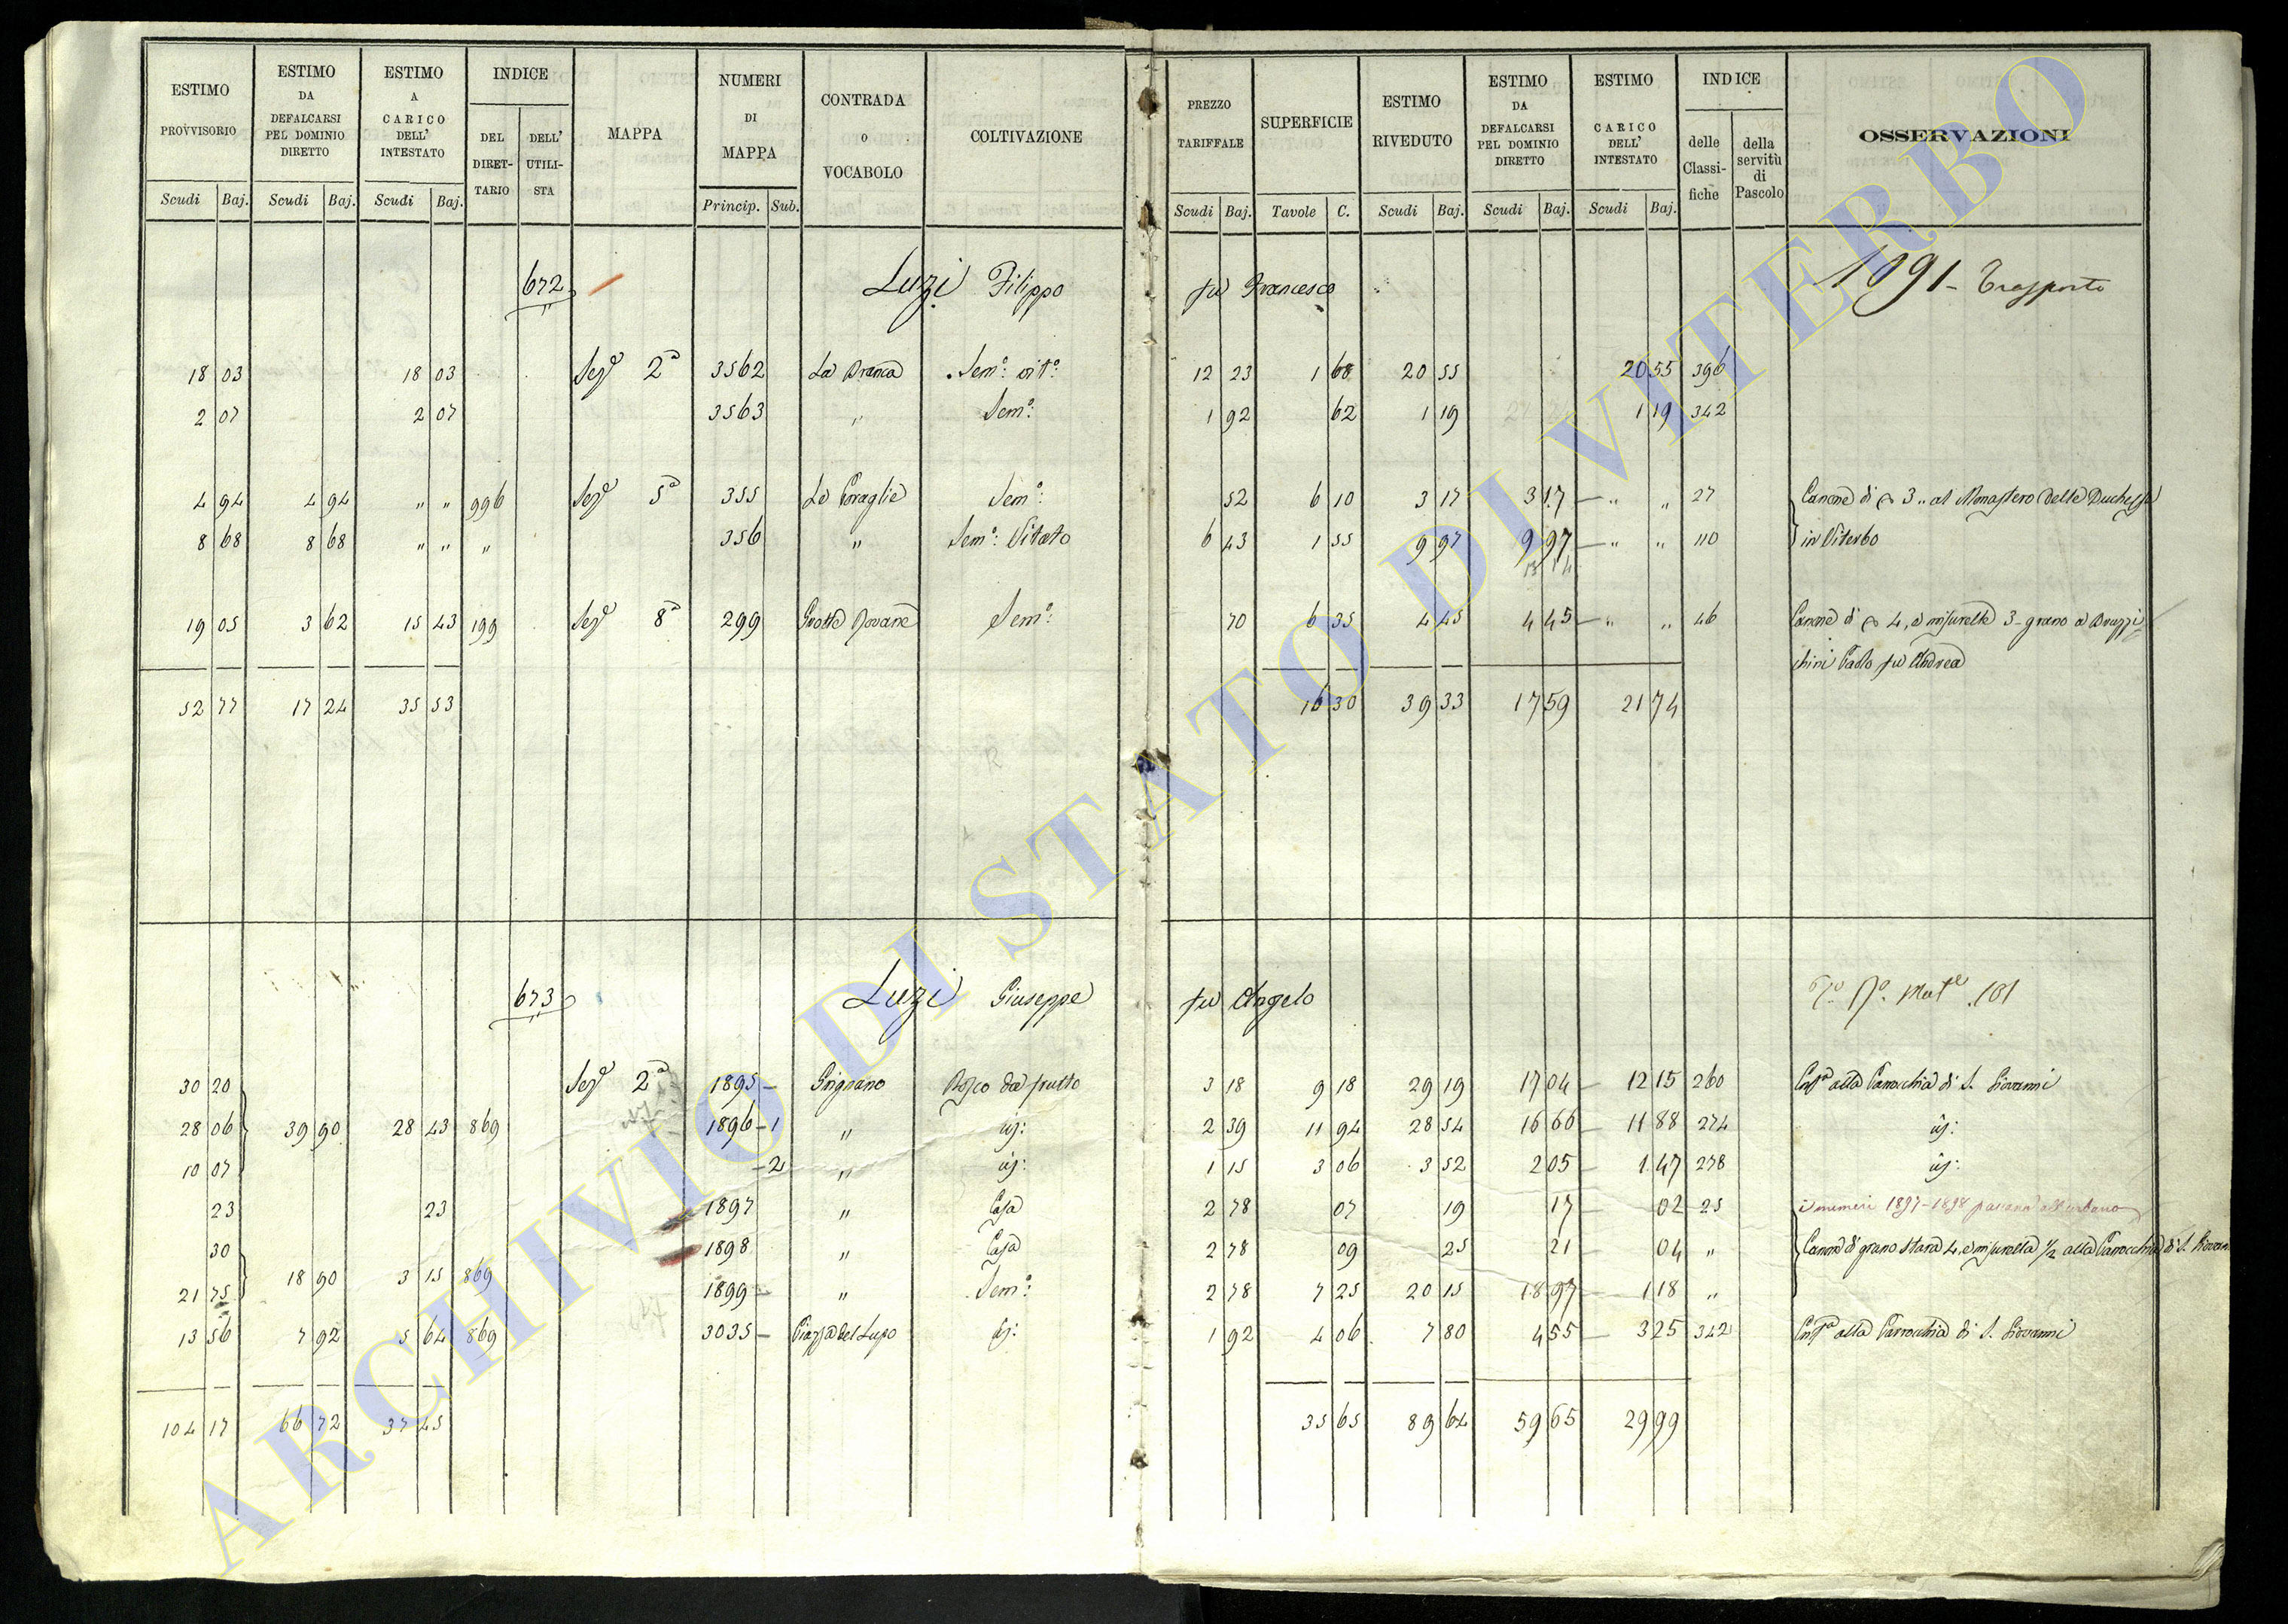 ESTIMO PROVVISORIO Scudi Baj.
ESTIMO DA DEFALCARSI PEL DOMINIO DIRETTO Scudi Baj.
ESTIMO A CARICO DELL' INTESTATO Scudi Baj.
INDICE DEL DIRET- TARIO DELL' UTILI- STA
MAPPA
NUMERI DI MAPPA Princip. Sub.
CONTRADA o VOCABOLO
COLTIVAZIONE
PREZZO TARIFFALE Scudi Baj.
SUPERFICIE Tavole C.
ESTIMO RIVEDUTO Scudi Baj.
ESTIMO DA DEFALCARSI PEL DOMINIO DIRETTO Scudi Baj.
ESTIMO CARICO DELL' INTESTATO Scudi Baj.
INDICE delle Classi- fiche della servitù di Pascolo
OSSERVAZIONI
672 Luzi Filippo fu Francesco 1891 - Trasporto
18 03 18 03 Sezе 2a 3562 La Branca Semo: vito: 12 23 1 68 20 55 20 55 396
2 07 2 07 3563 " Semo: 1 92 62 1 19 1 19 342
4 94 4 94 " " 996 Seze 5a 355 Le Coraglie Semo: 52 6 10 3 17 3 17 — " " 27 Canone di 3 .. al Monastero delle Duchesse
8 68 8 68 " " " 356 " Semo: Vitato 6 43 1 55 9 97 9 97 — " " 110 in Viterbo
13 14
19 05 3 62 15 43 199 Seze 8a 299 Grotte Rovane Semo: 70 6 35 4 45 4 45 — " " 46 Canone di 4, e misurelle 3 - grano a Bruzzi=
chini Paolo fu Andrea
52 77 17 24 35 53 16 30 39 33 17 59 21 74
673 Luzi Giuseppe fu Angelo No. Mate. 181
30 20 Seze 2a 1895 — Grignano Bosco da frutto 3 18 9 18 29 19 17 04 — 12 15 260 Enfa alla Parrocchia di S. Giovanni
28 06 39 90 28 43 869 1896 - 1 " id: 2 39 11 94 28 54 16 66 — 11 88 274 id:
10 07 - 2 " id: 1 15 3 06 3 52 2 05 — 1 47 278 id:
23 23 1897 " Casa 2 78 07 19 17 — 02 25 i numeri 1897-1898 passano all'urbano
30 1898 " Casa 2 78 09 25 21 — 04 " Canone di grano stara 4, e misurella 1/2 alla Parrocchia di S. Giovanni
21 75 18 90 3 15 869 1899 — " Semo: 2 78 7 25 20 15 18 97 — 1 18 "
13 56 7 92 5 64 869 3035 — Piazza del Lupo id: 1 92 4 06 7 80 4 55 — 3 25 342 Enfa alla Parrocchia di S. Giovanni
104 17 66 72 37 45 35 65 89 64 59 65 29 99
ARCHIVIO DI STATO DI VITERBO